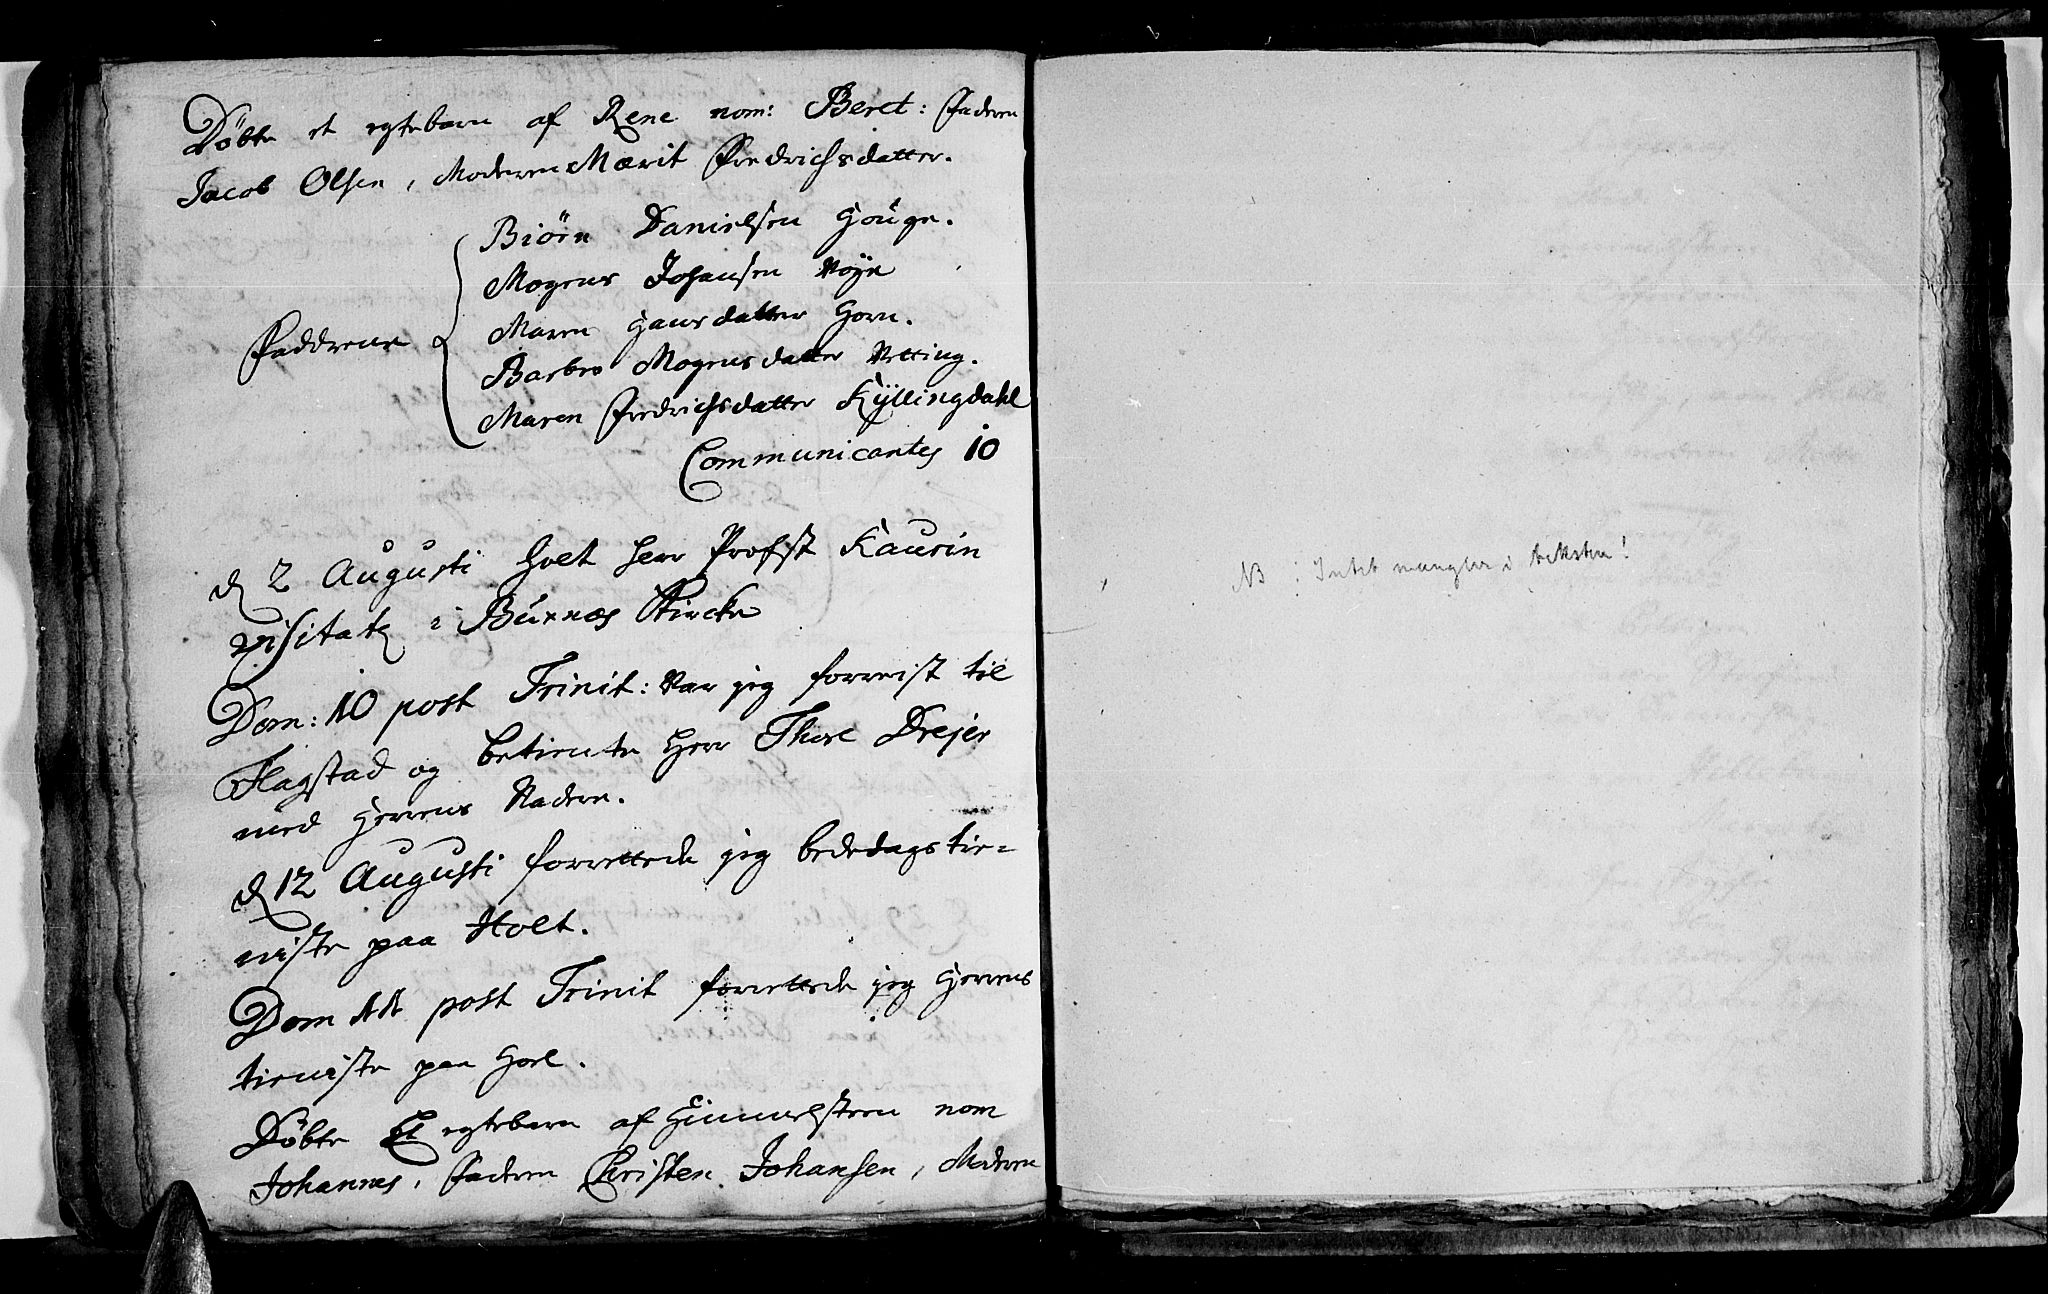 Døbte et egtebarn af Rene nom: Beret: Faderen
Jacob Olsen, Moderen Mærit Fredrichsdatter.
Biörn Danielsen Houge.
Mogens Johansen Vöÿe
Maren Hansdatter Horn.
Faddrene
Barbro Mogensdatter Vetting.
Maren Fredrichsdatter Kÿllingdahl
Communicantes 10
d 2 Augusti holt herr Profst Kaurin
visitatz i Buxnæs Kircke
Dom: 10 post Trinit: Var jeg forreist til
Flagstad og betiente herr Thue Drejer
med Herrens Nadere.
d 12 Augusti forrettede jeg bededagstie=
niste paa Holt.
Dom 11 post Trinit forrettede jeg Herrens
tieniste paa Hoel.
Døbte Et egtebarn af Himmelsteen nom
Johannes, Faderen Christen Johansen, Moderen
NB: Intet mangler i teksten!